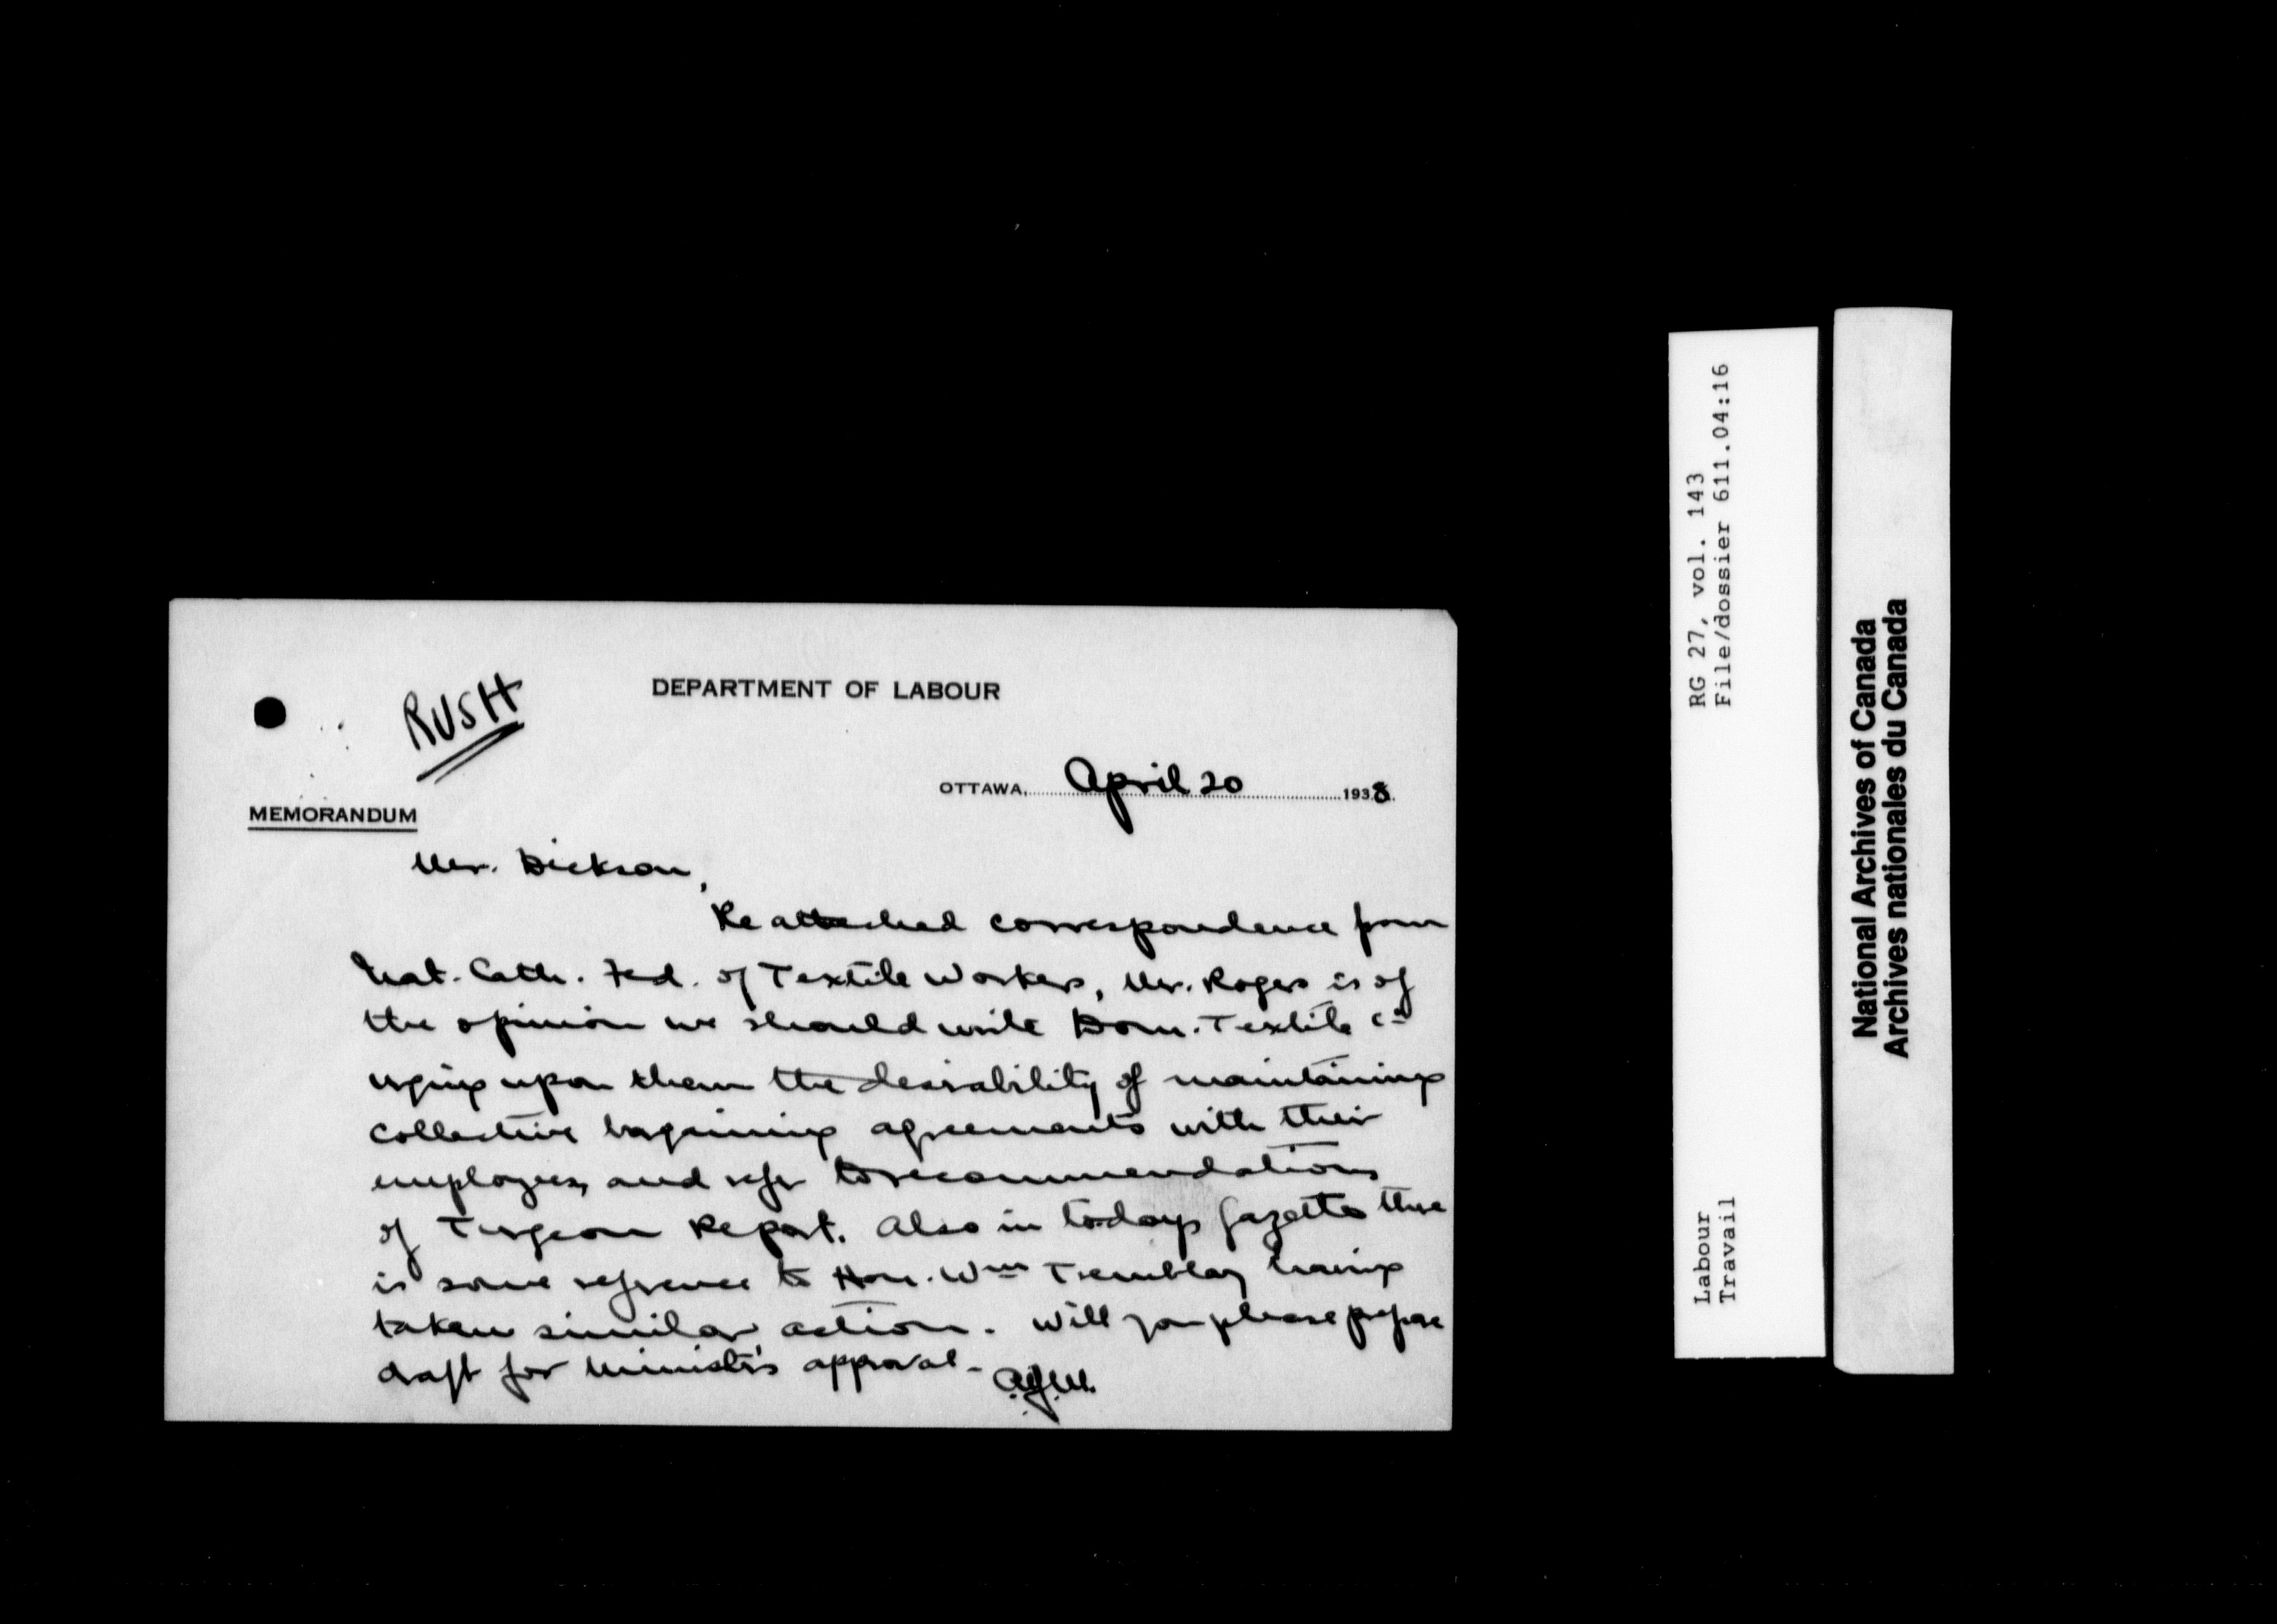 RUSH
DEPARTMENT OF LABOUR
OTTAWA, April 20 1938.
MEMORANDUM
Mr. Dickson,
Re attached correspondence from
Nat. Cath. Fed. of Textile Workers, Mr. Rogers is of
the opinion we should write Dom. Textile Co
urging upon them the desirability of maintaining
collective bargaining agreements with their
employees, and refer to recommendations
of Turgeon Report. Also in todays Gazette there
is some reference to Hon. Wm Tremblay having
taken similar action. Will you please prepare
draft for Minister's approval -
RG 27, vol. 143
File/dossier 611.04:16
Labour
Travail
National Archives of Canada
Archives nationales du Canada